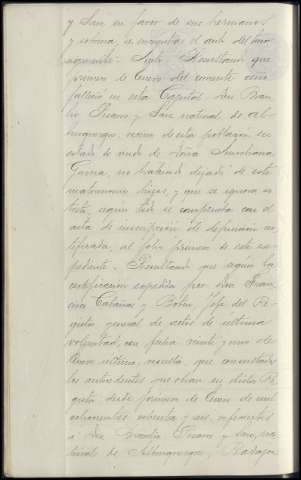 y Sáiz en favor de sus hermanos
y esposa, se encuentra el auto del tenor
siguiente. Resultando que
primero de Enero del corriente año
falleció en esta Capital Don Brau
lio y Sáiz natural de Al
burquerque, vecino de esta poblacion en
estado de viudo de Doña
Garcia, no habiendo dejado de este
matrimonio hijos, y que se ignora si
testó, segun todo se comprueba con el
acta de inscripción de defunción re
ferida, al folio primero de este ex
pediente. Resultando que según la
certificacion expedida por Don Fran
cisco Cabañas y Botin Jefe del Re
gistro general de actos de última
voluntad, con fecha veinte y uno de
Enero último, resulta, que consultados
los antecedentes que obran en dicho Re
gistro desde primero de Enero de mil
ochocientos ochenta y seis, referentes
a Don Braulio y Sáiz, na
tural de Alburquerque, Badajoz